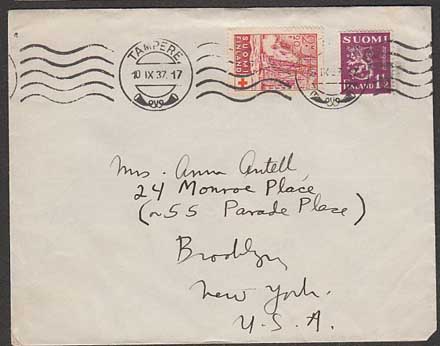 TAMPERE
10 IX 37. 17
SUOMI
FINLAND
SUOMI
FINLAND 1½
Mrs. Anna Antell,
24 Monroe Place,
(~55 Parade Place)
Brooklyn,
New York.
U.S.A.